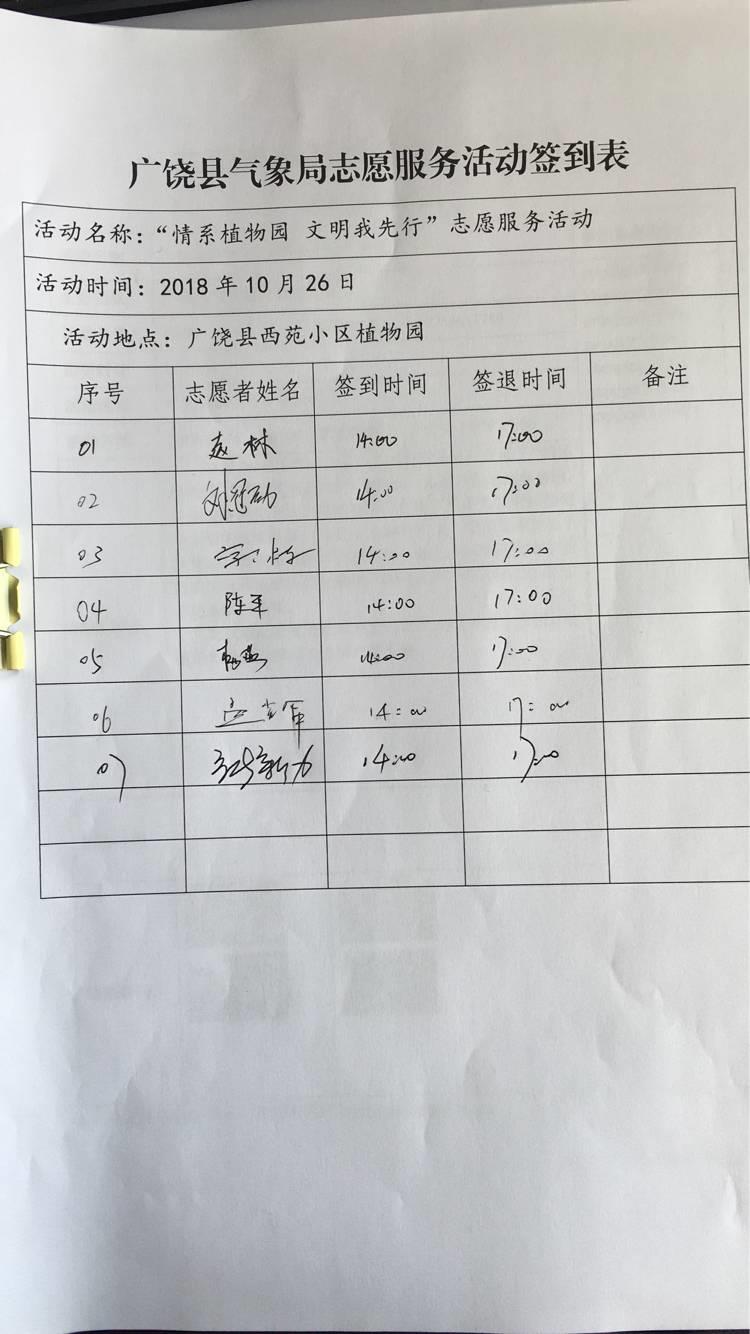 广饶县气象局志愿服务活动签到表
活动名称：“情系植物园 文明我先行”志愿服务活动
活动时间：2018 年 10 月 26 日
活动地点：广饶县西苑小区植物园
序号 志愿者姓名 签到时间 签退时间 备注
01 赵林 14:00 17:00
02 14:00 17:00
03 14:00 17:00
04 陈军 14:00 17:00
05 14:00 17:00
06 14:00 17:00
07 14:00 17:00